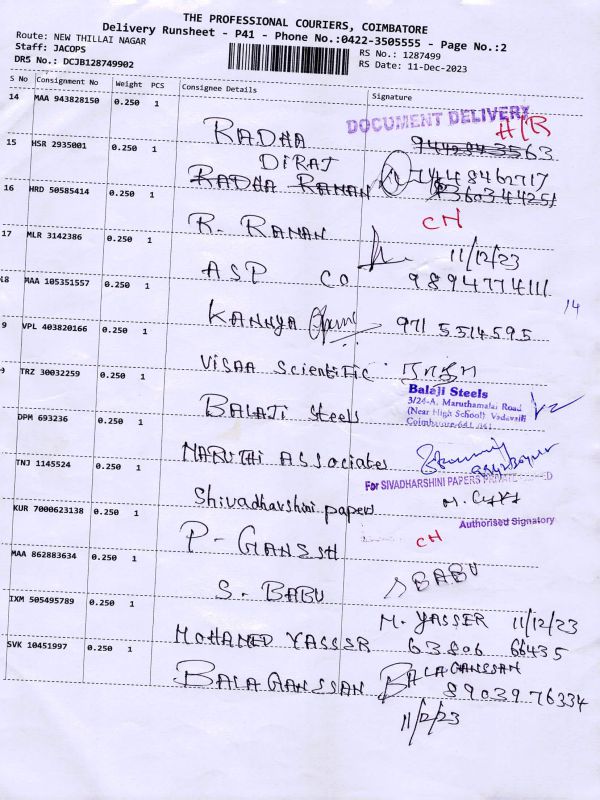 THE PROFESSIONAL COURIERS, COIMBATORE
Delivery Runsheet - P41 - Phone No.:0422-3505555 - Page No.:2
Route: NEW THILLAI NAGAR
Staff: JACOPS
DRS No.: DCJB128749902
RS No.: 1287499
RS Date: 11-Dec-2023
S No Consignment No Weight PCS Consignee Details Signature
14 MAA 943828150 0.250 1 RADHA
DOCUMENT DELIVERY
H/R
15 HSR 2935001 0.250 1 DIRAJ
RADHA RAMAN
16 HRD 50585414 0.250 1 R. RAMAN CH
17 MLR 3142386 0.250 1 ASP CO 11/12/23
9894774111
18 MAA 105351557 0.250 1 KANNYA 971 5514595
14
9 VPL 403820166 0.250 1 VISAA Scientific
9 TRZ 30032259 0.250 1 BALAJI Steels
Balaji Steels
3/24-A, Maruthamalai Road
(Near High School) Vadavalli
DPM 693236 0.250 1 MARUTHI ASSociates
TNJ 1145524 0.250 1 Shivadharshini papers
For SIVADHARSHINI PAPERS PRIVATE
Authorised Signatory
KUR 7000623138 0.250 1 P- GANESH CH
MAA 862883634 0.250 1 S. BABU S BABU
IXM 505495789 0.250 1 MOHAMED YASSER
M. YASSER 11/12/23
63806 66435
SVK 10451997 0.250 1 BALAGANESSAN
BALAGANESSAN
8903976334
11/2/23